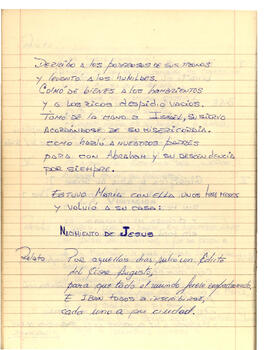 DERRIBÓ A LOS PODEROSOS DE SUS TRONOS
Y LEVANTÓ A LOS HUMILDES.
COLMÓ DE BIENES A LOS HAMBRIENTOS
Y A LOS RICOS DESPIDIÓ VACÍOS.
TOMÓ DE LA MANO A ISRAEL, SU SIERVO
ACORDÁNDOSE DE SU MISERICORDIA.
COMO HABLÓ A NUESTROS PADRES
PARA CON ABRAHAM Y SU DESCENDENCIA
POR SIEMPRE.
ESTUVO MARIA CON ELLA UNOS TRES MESES
Y VOLVIÓ A SU CASA:
NACIMIENTO DE JESUS
Relato: Por aquellos días salió un Edicto
del César Augusto,
para que todo el mundo fuese empadronado,
E IBAN todos a inscribirse,
cada uno a su ciudad.